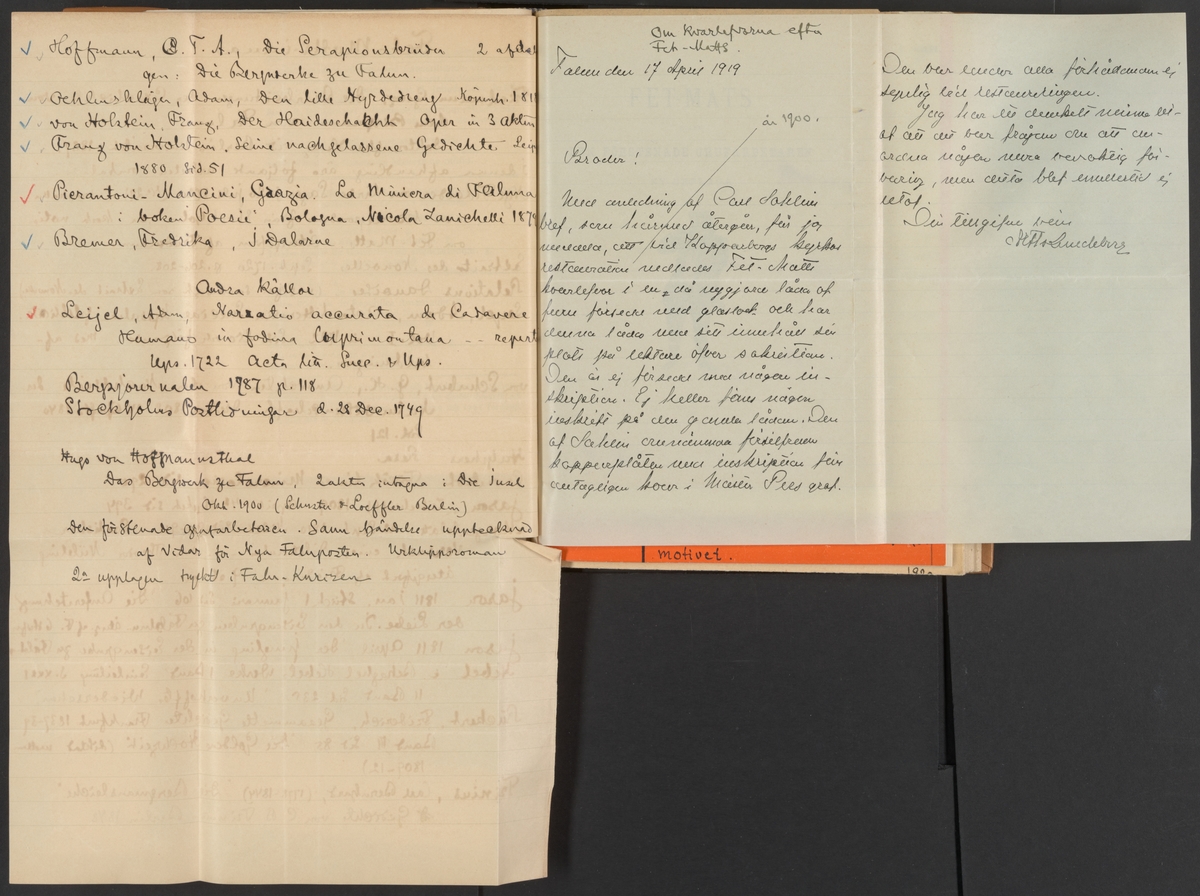 Hoffmann, E. T. A., Die Serapionsbrüder 2 
gen: Die Bergwerke zu Falun.
Oehlenschläger, Adam, Den lille Hyrdedreng Köpenh. 181
von Holstein, Franz, Der Haideschacht Oper in 3 akten
Franz von Holstein, seine nachgelassene Gedichte. Leip
1880. Sid. 51
Pierantoni-Mancini, Grazia. La Miniera di Faluna
i boken "Poesie", Bologna, Nicola Zanichelli 187
Bremer, Fredrika, I Dalarne
Andra källor
Leijel, Adam, Narratio accurata de Cadavere
Humano in fodina Cuprimontana -- repert
Ups. 1722 Acta litt. Suec. Ups.
Bergsjournalen 1787 p. 118
Stockholms Posttidningar d. 28 Dec. 1749
Hugo von Hofmannsthal
Das Bergwerk zu Falun, 2 akten intagna i Die Insel
Okt. 1900 (Schuster & Loeffler Berlin)
Den förstenade grufarbetaren. Sann händelse upptecknad
af Vidar för Nya Faluposten. Urklippsroman
2a upplagan tryckt i Falu-Kuriren
Om kvarlefvorna efter
Fet-Matts.
Falun den 17 April 1919
år 1900.
Broder!
Med anledning af Carl Sahlin
bref, som härmed återgår, får jag
meddela, att vid Kopparbergs kyrkas
restauration nedlades Fet-Matts
kvarlefvor i en då nygjord låda af
furu försedd med glaslock och har
denna låda med sitt innehåll sin
plats på läktare öfver sakristian.
Den är ej försedd med någon in-
skription. Ej heller finns någon
inskrift på den gamla lådan. Den
af Sahlin omnämnda försilfrade
kopparplåten med inskription finns
antagligen kvar i Mats Pers graf.
Den var under alla förhållanden ej
synlig vid restaureringen.
Jag har ett dunkelt minne
af att det var frågan om att an-
ordna någon mera varaktig för-
varing, men detta blef emellertid ej
utaf.
Din tillgifne vän
Lundeberg
motivet.